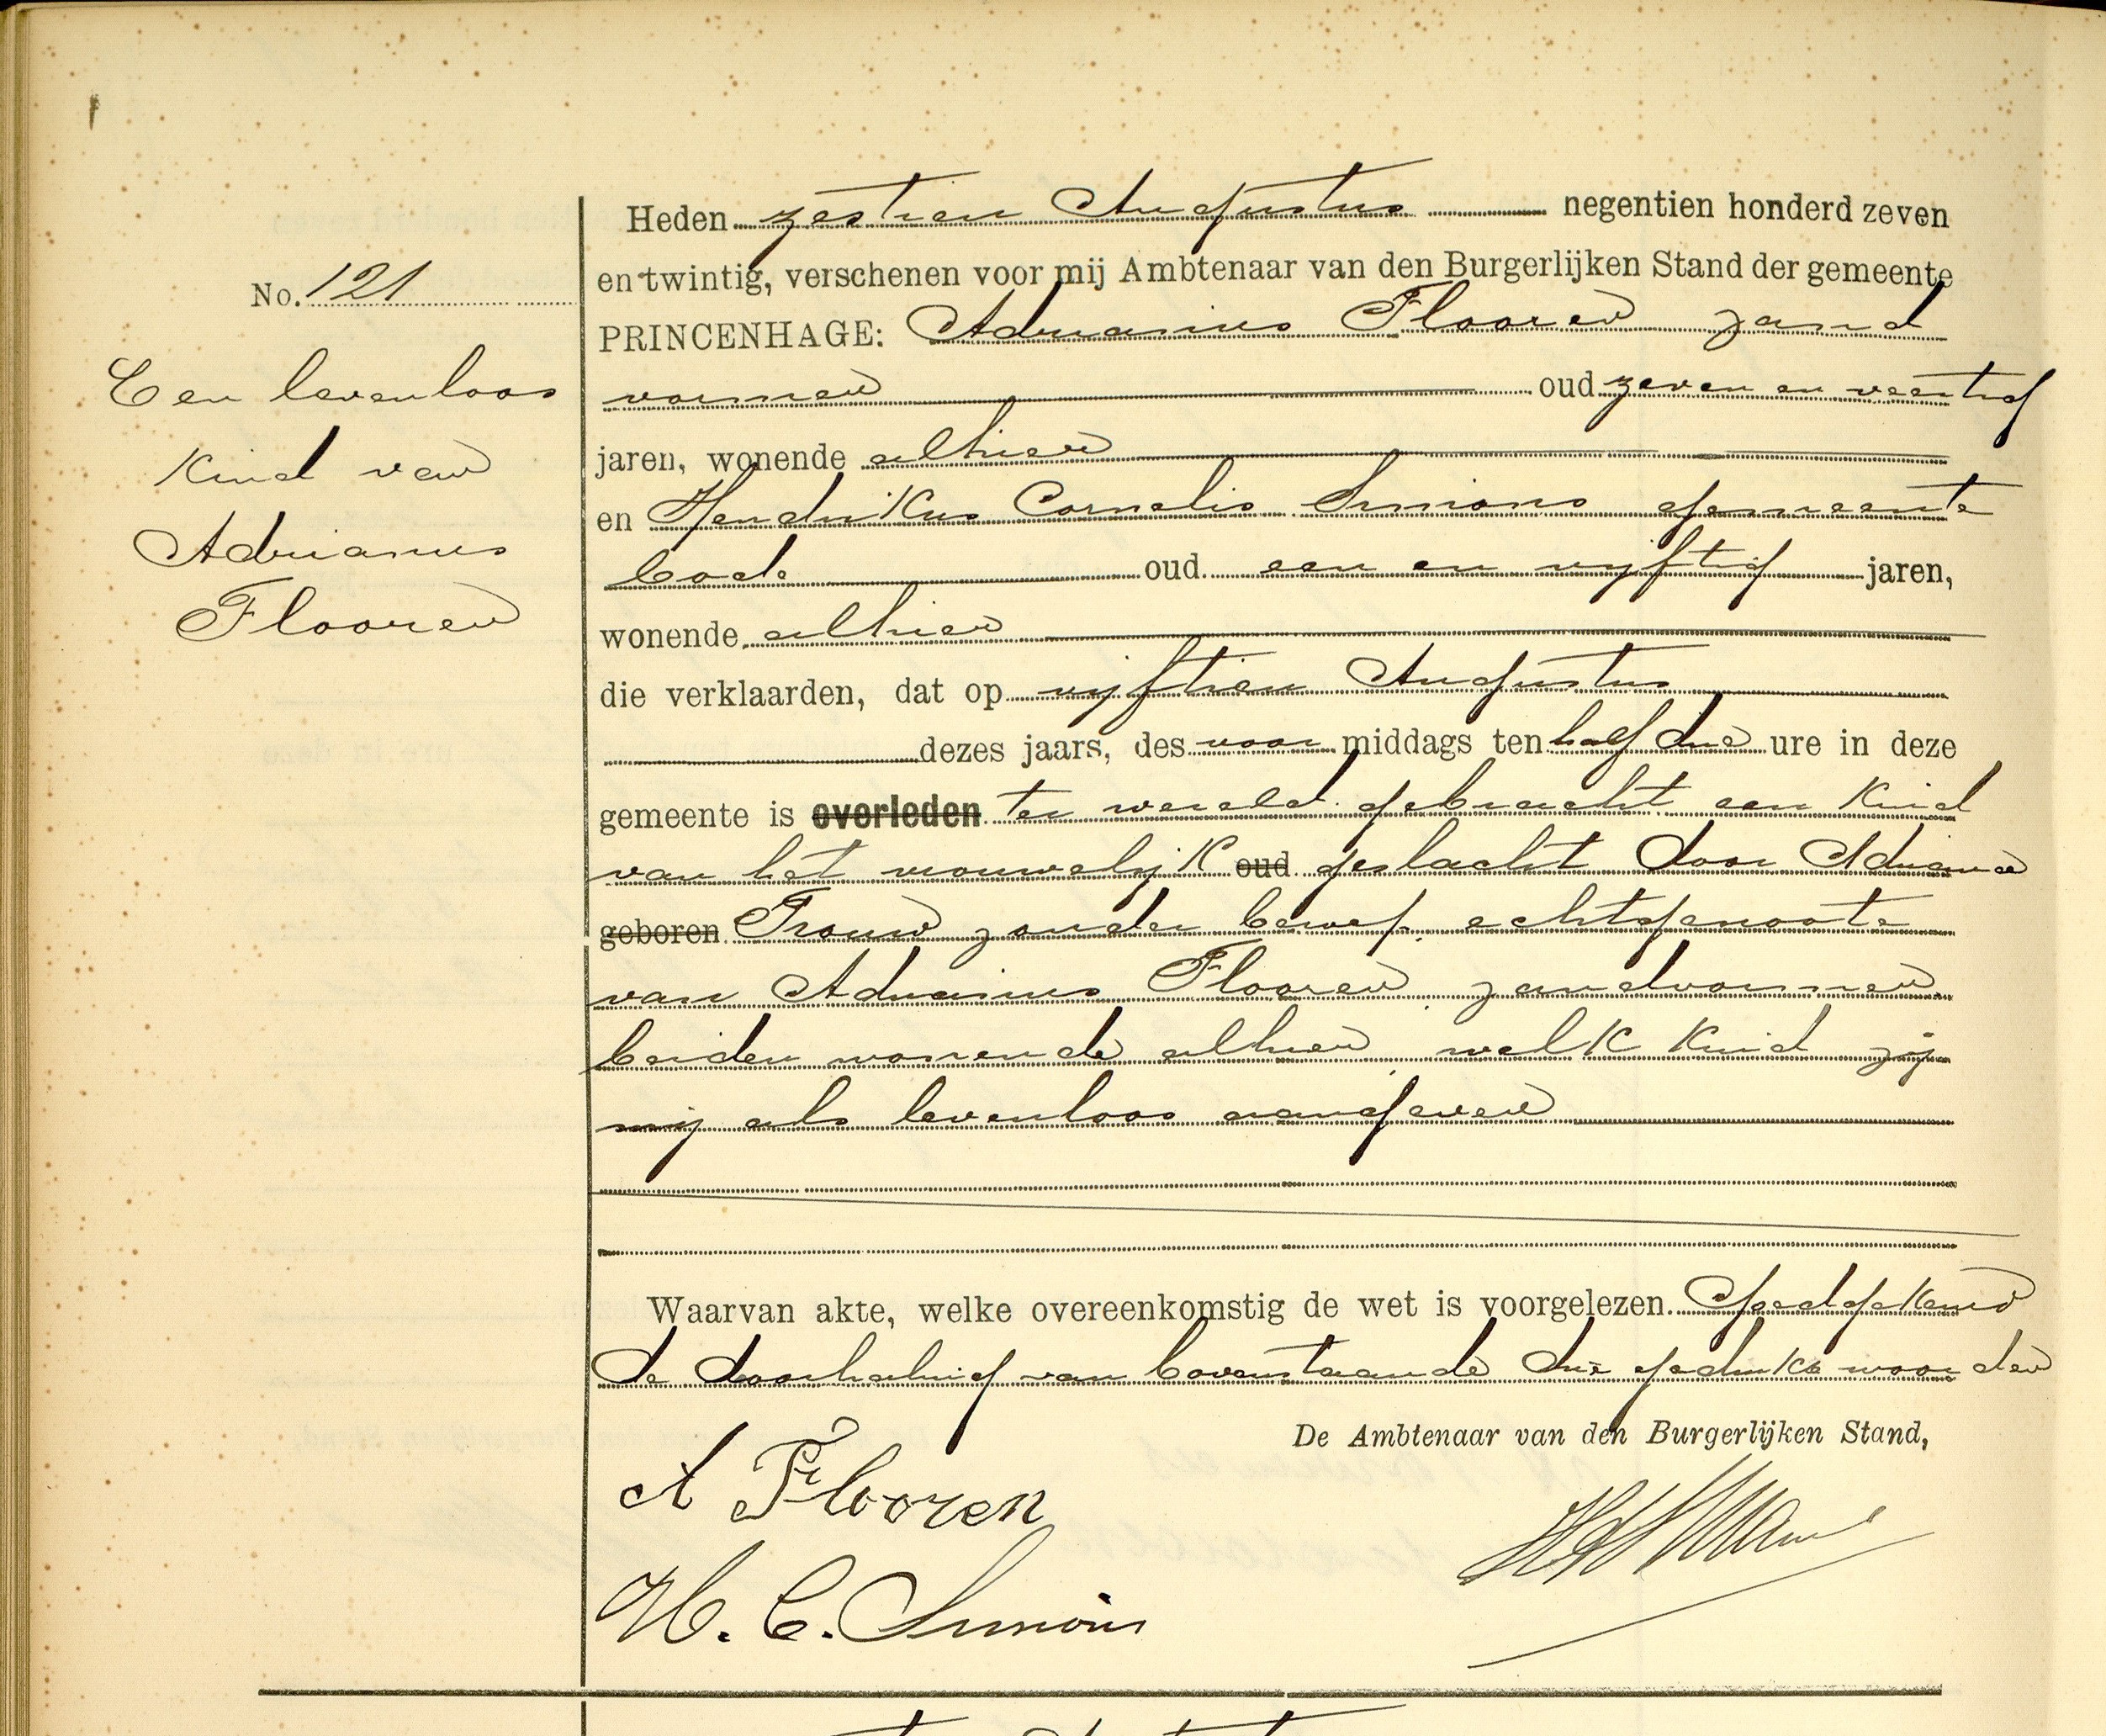 No. 121
Een levenloos
kind van
Adrianus
Flooren
Heden zestien Augustus negentien honderd zeven
en twintig, verschenen voor mij Ambtenaar van den Burgerlijken Stand der gemeente
PRINCENHAGE: Adrianus Flooren zand
vormer oud zeven en veertig
jaren, wonende alhier
en Hendrikus Cornelis Simons gemeente
bode oud een en vijftig jaren,
wonende alhier
die verklaarden, dat op vijftien Augustus
dezes jaars, des voor middags ten half drie ure in deze
gemeente is overleden ter wereld gebracht een kind
van het vrouwelijk oud geslacht door Adriana
geboren Trouw zonder beroep, echtgenoote
van Adrianus Flooren, zandvormer
beiden wonende alhier, welk kind zij
mij als levenloos aangeven
Waarvan akte, welke overeenkomstig de wet is voorgelezen. Goedgekeurd
de doorhaling van bovenstaande drie gedrukte woorden
De Ambtenaar van den Burgerlijken Stand,
A Flooren
H. C. Simons